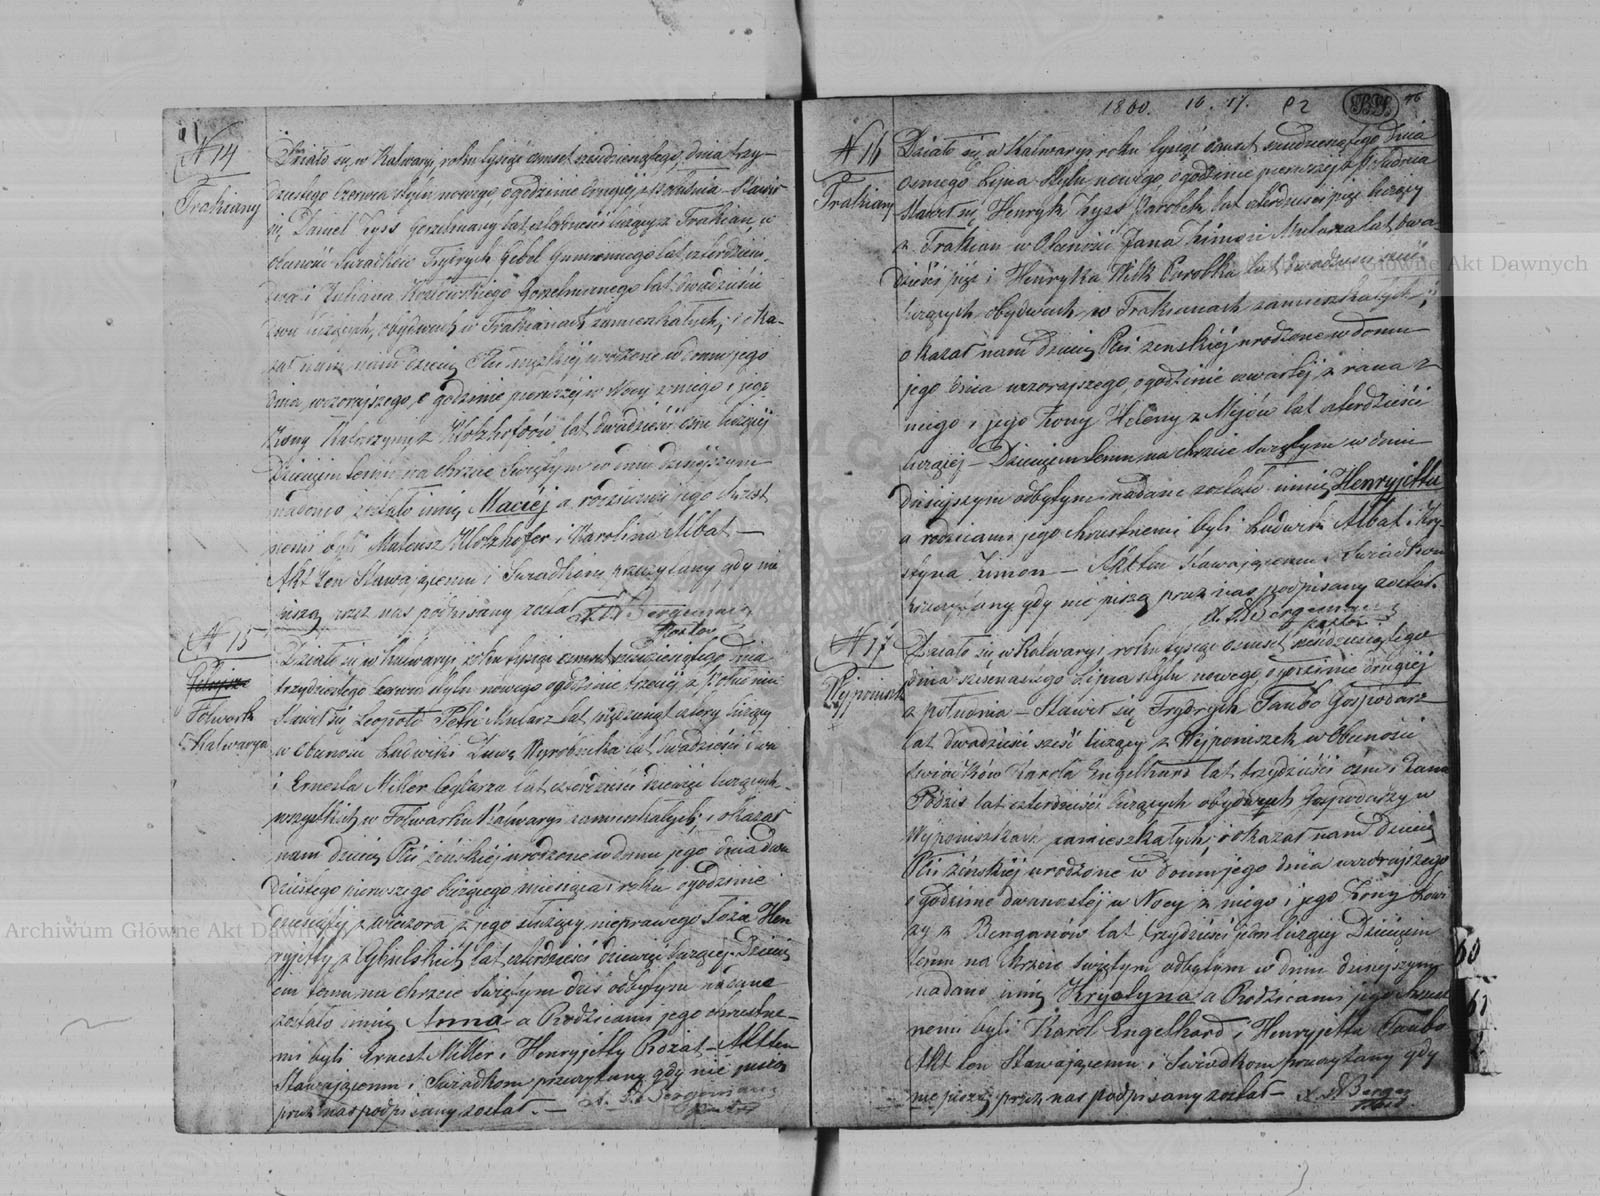 N 14
Trakiany
Działo się w Kalwaryi roku tysiąc ośmset sześćdziesiątego, dnia trzy-
dziestego Czerwca stylu nowego o godzinie drugiej z południa Stawił
się Daniel Zyss Gorzelniany lat liczący z Trakian, w
obecności Świadków Frydrych Gebel Gumiennego lat czterdzieści
dwa i Juliana Kozłowskiego Gorzelnianego lat dwadzieścia
dwa liczących, obydwuch w Trakianach zamieszkałych, i oka-
zał nam dziecię Płci męzkiej urodzone w domu jego
dnia wczorajszego, o godzinie pierwszej w Nocy z niego i jego
Żony Katarzyny z Klotzhoferów lat dwadzieścia ośm liczącej
Dziecięciu temu na chrzcie Świętym w dniu dzisiejszym
nadano zostało imię Maciej a rodzicami jego chrzest
nemi byli Mateusz Klotzhofer i Karolina Albat —
Akt ten Stawającemu i Świadkom przeczytany gdy nie
piszą przez nas podpisany został X. Bergemann
Pastor
N 15
Folwark
Kalwarya
Działo się w Kalwaryi roku tysiąc ośmset sześćdziesiątego dnia
trzydziestego Czerwca stylu nowego o godzinie trzeciej z Południa
Stawił się Leopold Petri Mularz lat pięćdziesiąt cztery liczący
w Obecności Ludwika Wyrobnika lat dwadzieścia dwa
i Ernesta Miller Ceglarza lat czterdzieści dziewięć liczących
wszystkich w Folwarku Kalwaryi zamieszkałych, i okazał
nam dziecię Płci żeńskiej urodzone w domu jego dnia dwu
dziestego pierwszego bieżącego miesiąca i roku o godzinie
dziesiątej z wieczora z jego nieprawego Łoża Hen
ryjetty z Cybulskich lat czterdzieści dziewięć liczącej. Dzieci
em temu na chrzcie Świętym dziś odbytym nadane
zostało imię Anna a Rodzicami jego chrzestne-
mi byli Ernest Miller i Henryjetty Rozat — Akt ten
Stawającemu i Świadkom przeczytany gdy nie piszą
przez nas podpisany został. — X. Bergemann
Pastor
1860. 16. 17.
N 16
Trakiany
Działo się w Kalwaryi roku tysiąc ośmset sześdziesiątego dnia
osmego Lipca stylu nowego o godzinie pierwszej z Południa
Stawił się Henryk Zyss Parobek lat czterdzieści pięć liczący
z Trakian w Obecności Jana Zimon Mularza lat dwa
dzieścia pięć i Henryka Wilk Parobka lat dwadzieścia
liczących obydwuch w Trakianach zamieszkałych i
okazał nam dziecię Płci żenskiej urodzone w domu
jego dnia wczorajszego o godzinie czwartej z rana z
niego i jego Żony Heleny z Mejów lat czterdzieści
liczącej — Dziecięciu temu na chrzcie Świętym w dniu
dzisiejszym odbytym nadane zostało imię Henryjetta
a rodzicami jego chrzestnemi byli Ludwik Albat i Kry
styna Zimon — Akt ten Stawającemu i Świadkom
przeczytany gdy nie piszą przez nas podpisany został.
X. Bergemann
Pastor
N 17
Wejponiszki
Działo się w Kalwaryi roku tysiąc ośmset sześćdziesiątego
dnia Lipca stylu nowego, o godzinie drugiej
z południa — Stawił się Frydrych Taubo Gospodarz
lat dwadzieścia sześć liczący z Wejponiszek w Obecności
świadków Karola Engelhard lat trzydzieści ośm i Jana
lat czterdzieści liczących obydwuch Gospodarzy w
Wejponiszkach zamieszkałych, i okazał nam dziecię
Płci żeńskiej urodzone w domu jego dnia wczorajszego
o godzinie dwunastej w Nocy z niego i jego Żony Lowi
zy z Berganów lat trzydzieści jeden liczącej Dziecięciu
temu na chrzcie Świętym odbytym w dniu dzisiejszym
nadano imię Krystyna a Rodzicami jego chrzest
nemi byli Karol Engelhard i Henryjetta Taubo
Akt ten Stawającemu i Świadkom przeczytany gdy
nie piszą przez nas podpisany został — X. Bergemann
Pastor
Archiwum Główne Akt Dawnych
Archiwum Główne Akt Dawnych